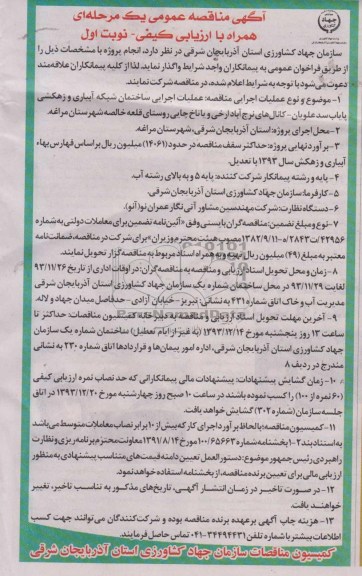 آگهی مناقصه عمومی یک مرحله‌ای
همراه با ارزیابی کیفی- نوبت اول
سازمان جهاد کشاورزی استان آذربایجان شرقی در نظر دارد، انجام پروژه با مشخصات ذیل را
از طریق فراخوان عمومی به پیمانکاران واجد شرایط واگذار نماید. لذا از کلیه پیمانکاران علاقه‌مند
دعوت می‌شود با توجه به شرایط اعلام شده، در مناقصه شرکت نمایند.
۱- موضوع و نوع عملیات اجرایی مناقصه: عملیات اجرایی ساختمان شبکه آبیاری و زهکشی
پایاب سد علویان- کانال‌های نرخ آبادرخی و یاخ جایی روستای قلعه خالصه شهرستان مراغه.
۲- محل اجرای پروژه: استان آذربایجان شرقی، شهرستان مراغه.
۳- برآورد نهایی پروژه: حداکثر سقف مناقصه در حدود (۱۴۰۶۱) میلیون ریال بر اساس فهارس بهاء
آبیاری و زهکش سال ۱۳۹۳ با تعدیل.
۴- پایه و رشته پیمانکار شرکت کننده: پایه ۵ و به بالای رشته آب.
۵- کارفرما: سازمان جهاد کشاورزی استان آذربایجان شرقی.
۶- دستگاه نظارت: شرکت مهندسین مشاور آنی نگار عمران نو(آنو).
۷- نوع و مبلغ تضمین: مناقصه‌گران بایستی وفق «آئین‌نامه تضمین برای معاملات دولتی به شماره
۴۲۹۵۶/ت۲۸۴۹۳ه‍ -۱۳۸۲/۹/۱۱ مصوب هیئت محترم وزیران» برای شرکت در مناقصه، ضمانت‌نامه
معتبر به مبلغ (۴۹۱) میلیون ریال تهیه و به همراه اسناد مربوط به مناقصه‌گزار تحویل نمایند.
۸- زمان و محل تحویل اسناد ارزیابی و مناقصه به مناقصه‌گران: در اوقات اداری از تاریخ ۹۳/۱۱/۲۶
لغایت ۹۳/۱۱/۲۹ در محل ساختمان شماره یک سازمان جهاد کشاورزی استان آذربایجان شرقی
مدیریت آب و خاک اتاق شماره ۴۳۱ به نشانی: تبریز- خیابان آزادی- حدفاصل میدان جهاد و لاله.
۹- آخرین مهلت تحویل اسناد ارزیابی و مناقصه به دبیرخانه کمیسیون مناقصات: حداکثر تا
ساعت ۱۳ روز پنجشنبه مورخ ۱۳۹۳/۱۲/۱۴ (به غیر از ایام تعطیل) ساختمان شماره یک سازمان
جهاد کشاورزی استان آذربایجان شرقی، اداره امور پیمان‌ها و قراردادها اتاق شماره ۲۳۰ به نشانی
مندرج در ردیف ۸
۱۰- زمان گشایش پیشنهادات: پیشنهادات مالی پیمانکارانی که حد نصاب نمره ارزیابی کیفی
(۶۰ نمره از ۱۰۰) را کسب نموده باشند در ساعت ۱۰ صبح روز چهارشنبه مورخ ۱۳۹۳/۱۲/۲۰ در اتاق
جلسه سازمان (شماره ۳۰۲) گشایش خواهد یافت.
۱۱- کمیسیون مناقصه با لحاظ برآورد اجرای کار که بیش از ۱۰ برابر نصاب معاملات متوسط می‌باشد
به استناد بند ۲-۱۰ بخشنامه شماره ۱۰۰/۶۵۶۶۳ مورخ ۱۳۹۱/۸/۱۴ معاونت محترم برنامه‌ریزی و نظارت
راهبردی رئیس جمهور موضوع: دستورالعمل تعیین دامنه قیمت‌های متناسب پیشنهادی به منظور
ارزیابی مالی برای تعیین برنده مناقصه، از بخشنامه استفاده خواهد نمود.
۱۲- در صورت تاخیر در زمان انتشار آگهی، تاریخ‌های مذکور به تناسب تاخیر، تغییر
خواهند یافت.
۱۳- هزینه چاپ آگهی بر عهده برنده مناقصه بوده و شرکت‌کنندگان می‌توانند جهت کسب
اطلاعات بیشتر با شماره تلفن ۳۴۴۹۴۴۳۱-۰۴۱ تماس حاصل فرمایند.
کمیسیون مناقصات سازمان جهاد کشاورزی استان آذربایجان شرقی